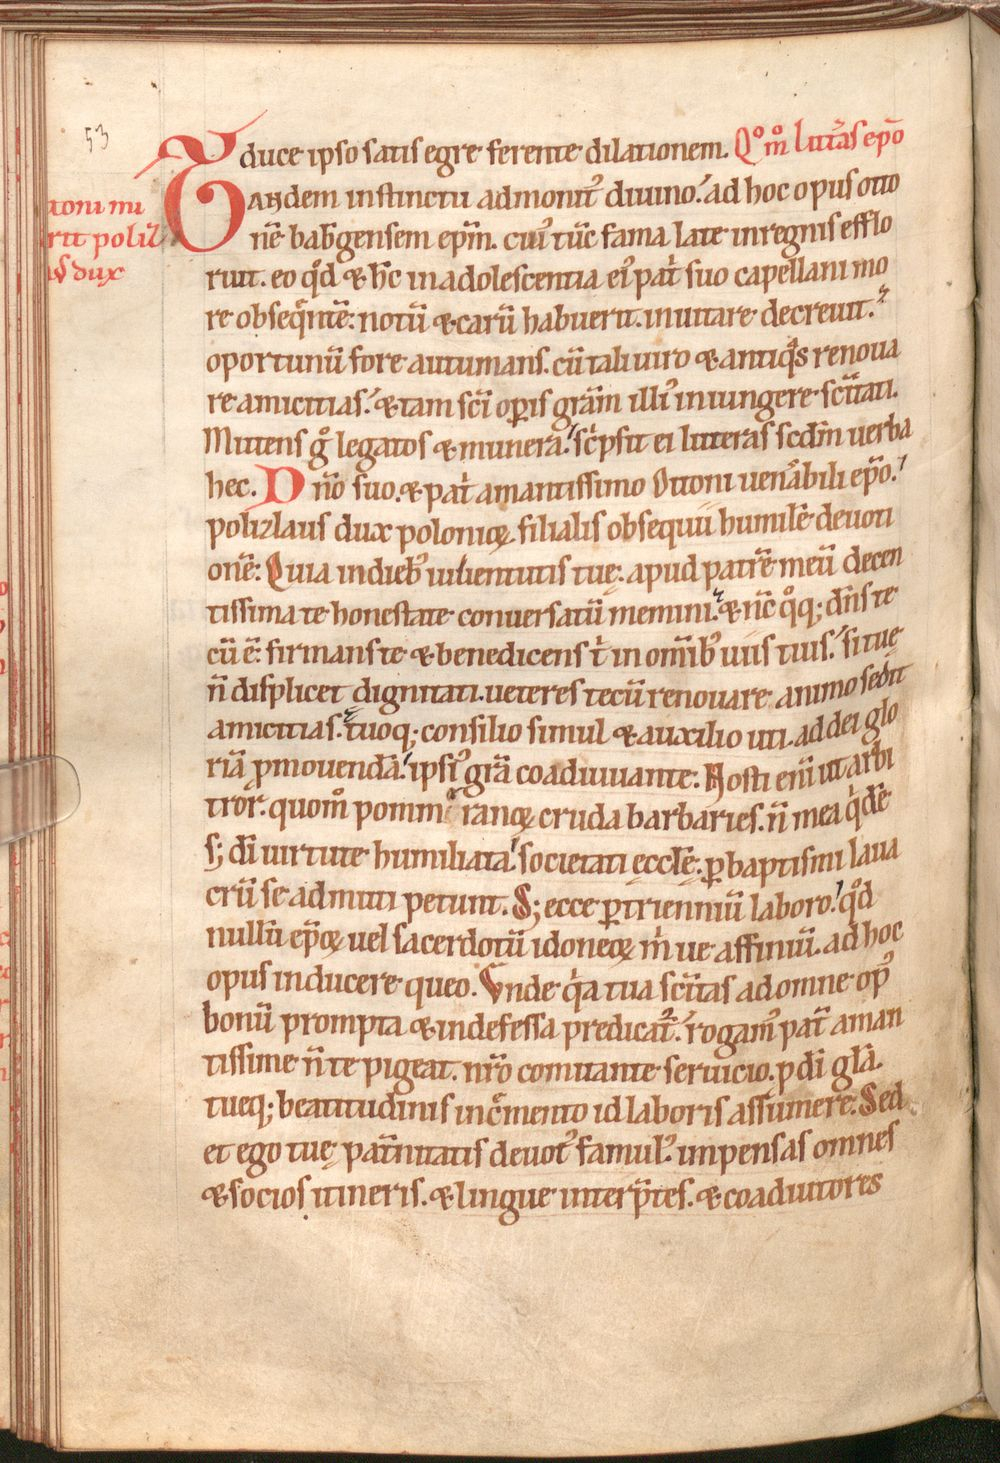 53
duce ipso satis egre ferente dilationem. Qom̊ litt̃as ep̃o
toni mi
rit poliz̃l
auͥ dux
Tandem instinctu admonit᷒ diuino. ad hoc opus otto
nē bab̄gensem ep̄m. cui᷒ tūc fama late in regnis efflo
ruit. eo qͦd & h̄c in adolescentia ei᷒ pat̄ suo capellani mo
re obseqͥntē: notū & carū habuerit. inuitare decreuit.
oportunū fore autumans. cū tali uiro & antiqͣs renoua
re amicitias. & tam sc̄i op̲is grām illi᷒ iniungere sc̄itati.
Mittens gͦ legatos & munera. sc̄psit ei litteras scdm̄ uerba
hec. Dn̄o suo. & pat̄ amantissimo Ottoni uenͣbili ep̄o.
polizlaus dux polonioꝝ. filialis obsequii humilē deuoti
onē: Quia in dieb᷒ iuuentutis tuę. apud patrē meū decen
tissima te honestate conuersatū memini. & nc̄ qͦq; dn̄s te
cū ē. firmans te & benedicens t̄ in om̄ib᷒ uiis tuis. si tuę
n̄ displicet dignitati. ueteres tecū renouare animo sedit
amicitias. tuoq; consilio simul & auxilio uti. ad dei glo
riā ꝓmouendā. ipsi᷒ grā coadiuuante. Nosti enī ut arbi
tror. quom̊ pommeranoꝝ cruda barbaries. n̄ mea qͥdē
s; dī uirtute humiliata. societati ęccłe. ꝑ baptismi laua
crū se admitti petunt. S; ecce ꝑ trienniū laboro. qͦd
nullū ep̄oꝝ uel sacerdotū idoneoꝝ m̄ ue affiniū. ad hoc
opus inducere queo. Vnde qͥa tua sc̄itas ad omne op᷒
bonū prompta & indefessa predicat᷒. rogam᷒ pat̄ aman
tissime n̄ te pigeat. nr̄o comitante seruicio. p dī glā.
tueq; beatitudinis inc̄mento id laboris assumere. Sed
et ego tuę pat̄nitatis deuot᷒ famul᷒. impensas omnes
& socios itineris. & lingue interp̄tes. & coadiutores